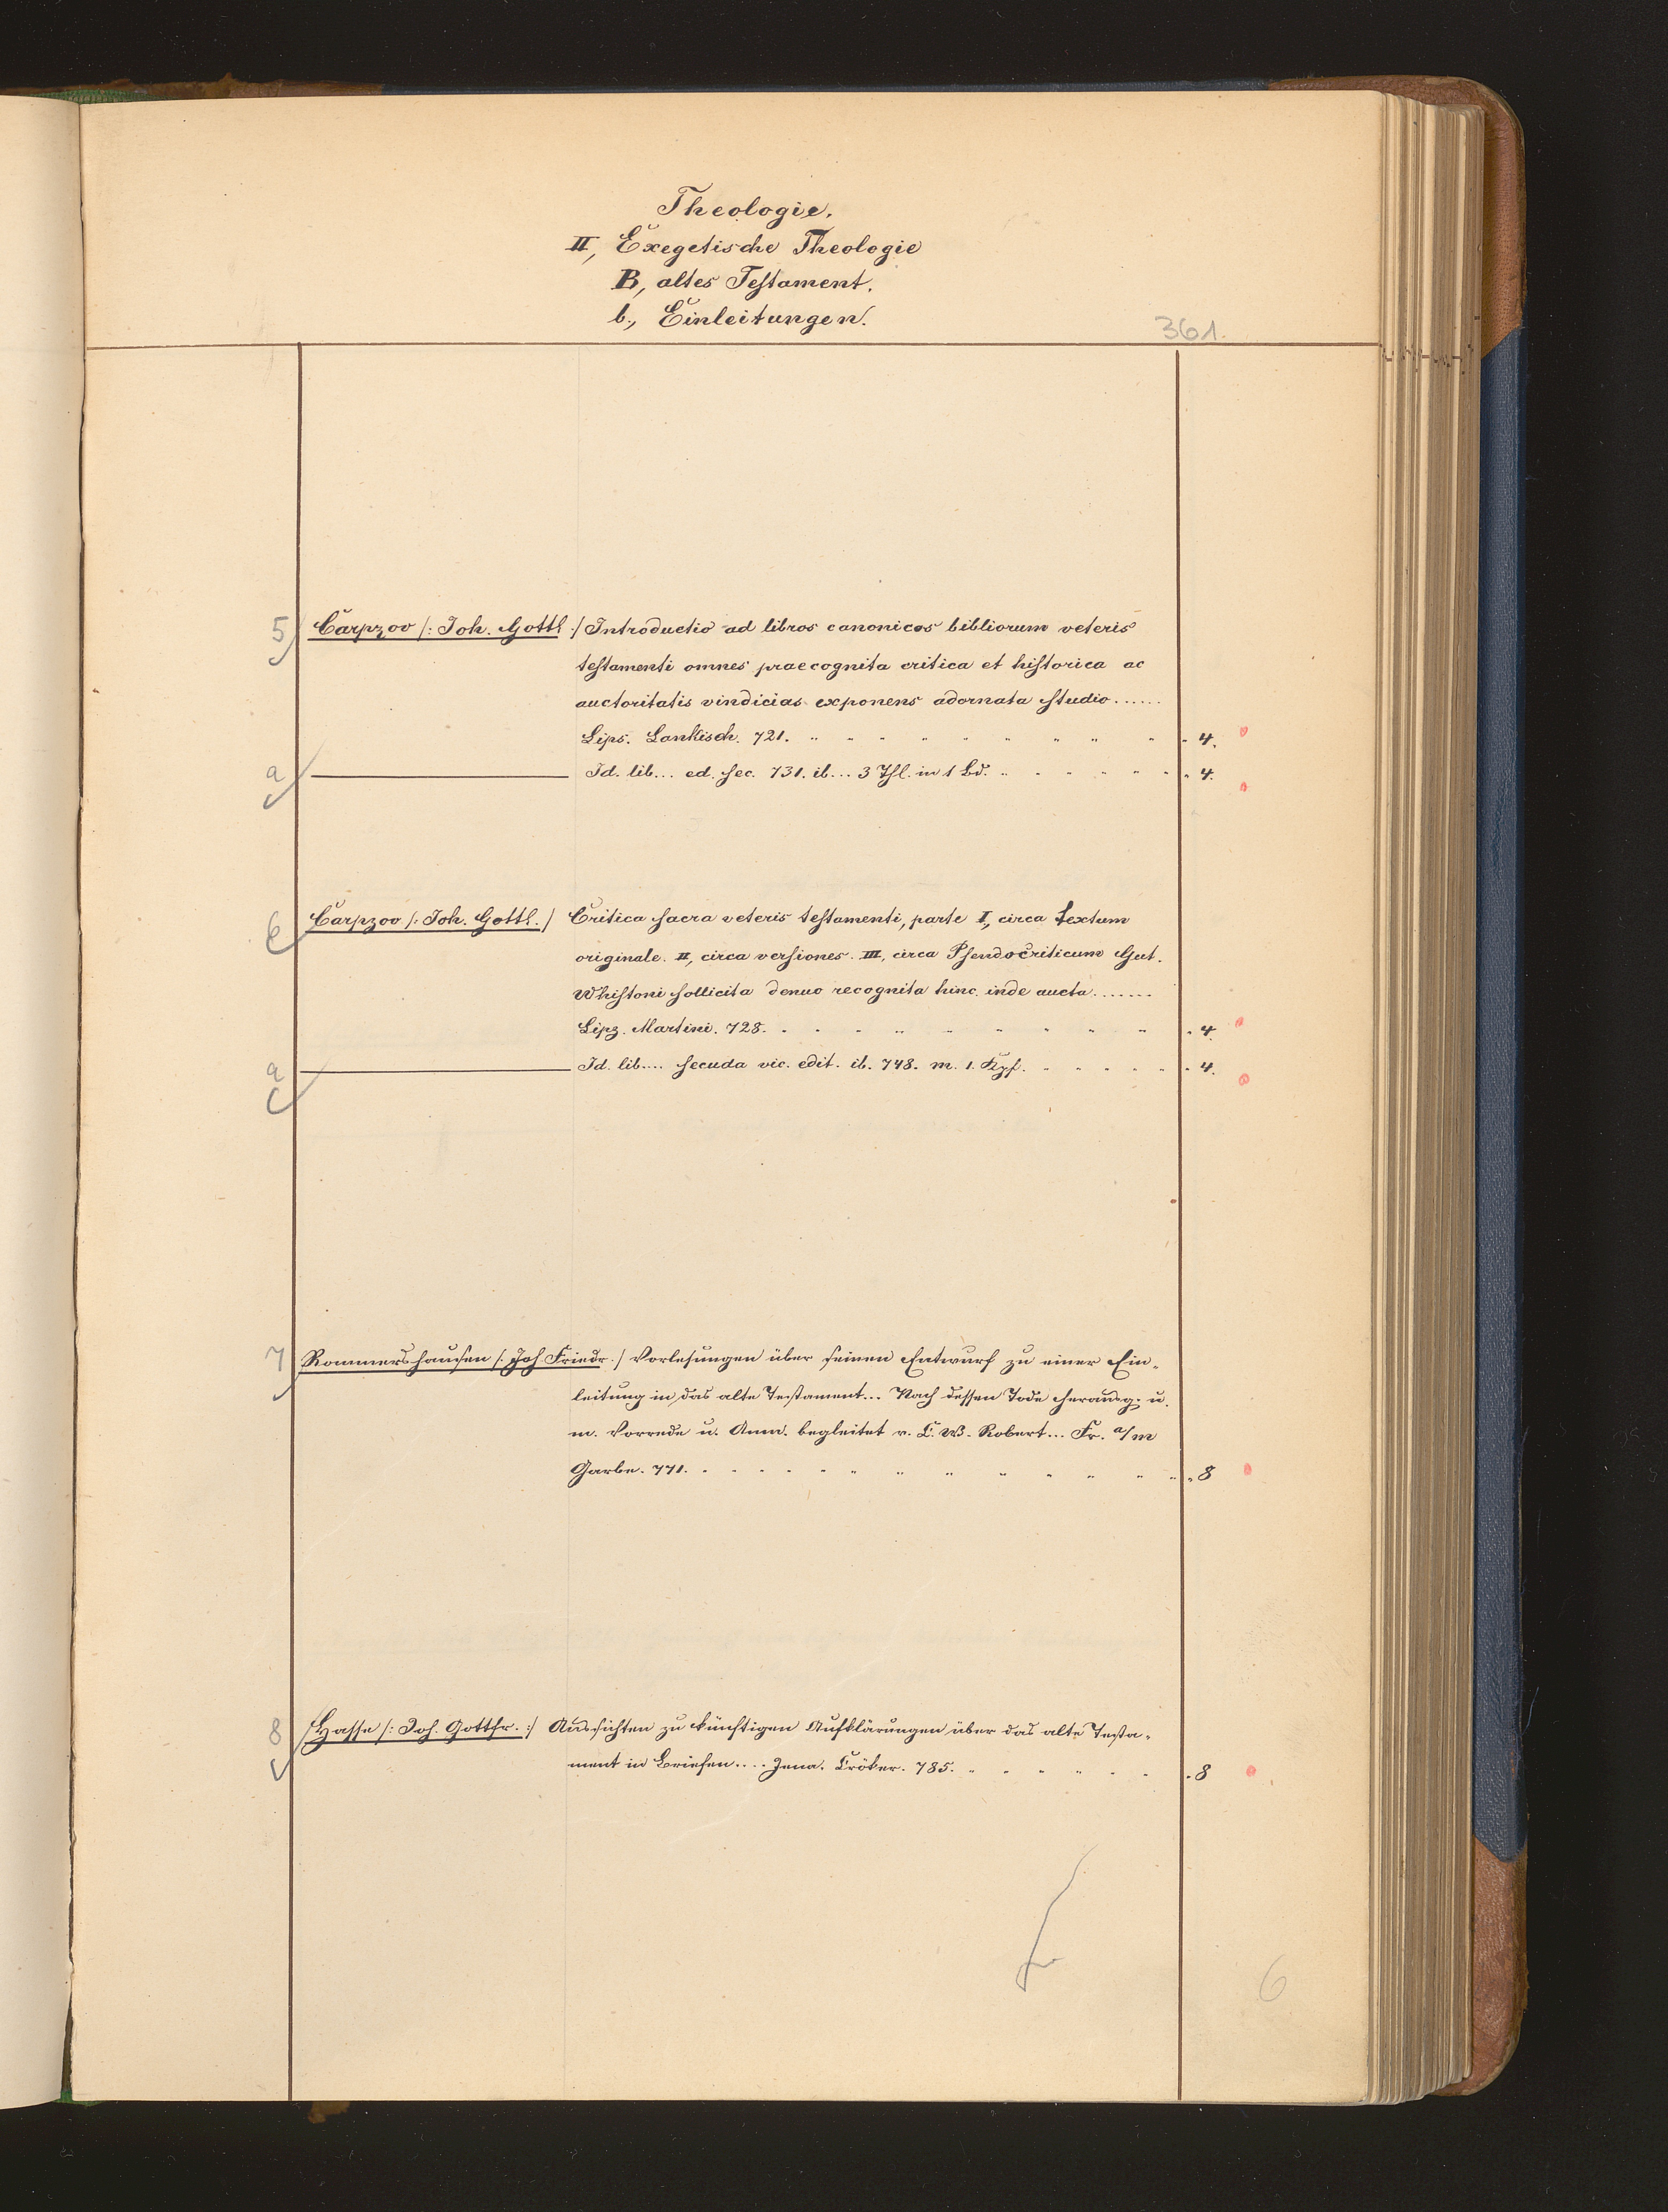 Theologie.
II, Exegetische Theologie
B, altes Testament.
b., Einleitungen.
361.
5 Carpzov /: Joh. Gottl :/ Introductio ad libros canonicos bibliorum veteris
testamenti omnes praecognita critica et historica ac
auctoritatis vindicias exponens adornata studio......
Lips. Lankisch. 721. " " " " " " " " " 4.
a Id. lib... ed. sec. 731. ib... 3 Thl. in 1 Bd. " " " " " " 4.
6 Carpzov /: Joh. Gottl. / Critica sacra veteris testamenti, parte I, circa textum
originale. II, circa versiones. III, circa Pseudocriticum Gut.
Whistoni sollicita denuo recognita hinc inde aucta.......
Lipz. Martini. 728. " " " " " " " " " 4.
a Id. lib.... secuda vic. edit. ib. 748. m. 1. Kpf. " " " " " 4.
7 Rommershausen /: Joh Friedr. / Vorlesungen über seinen Entwurf zu einer Ein-
leitung in das alte Testament... Nach dessen Tode herausg. u.
m. Vorrede u. Anm. begleitet v. C. W. Robert... Fr. a/m
Garbe. 771. " " " " " " " " " " " " 8
8 Hasse /: Joh. Gottfr. :/ Aussichten zu künftigen Aufklärungen über das alte Testa-
ment in Briefen.... Jena. Cröker. 785. " " " " " " 8
6